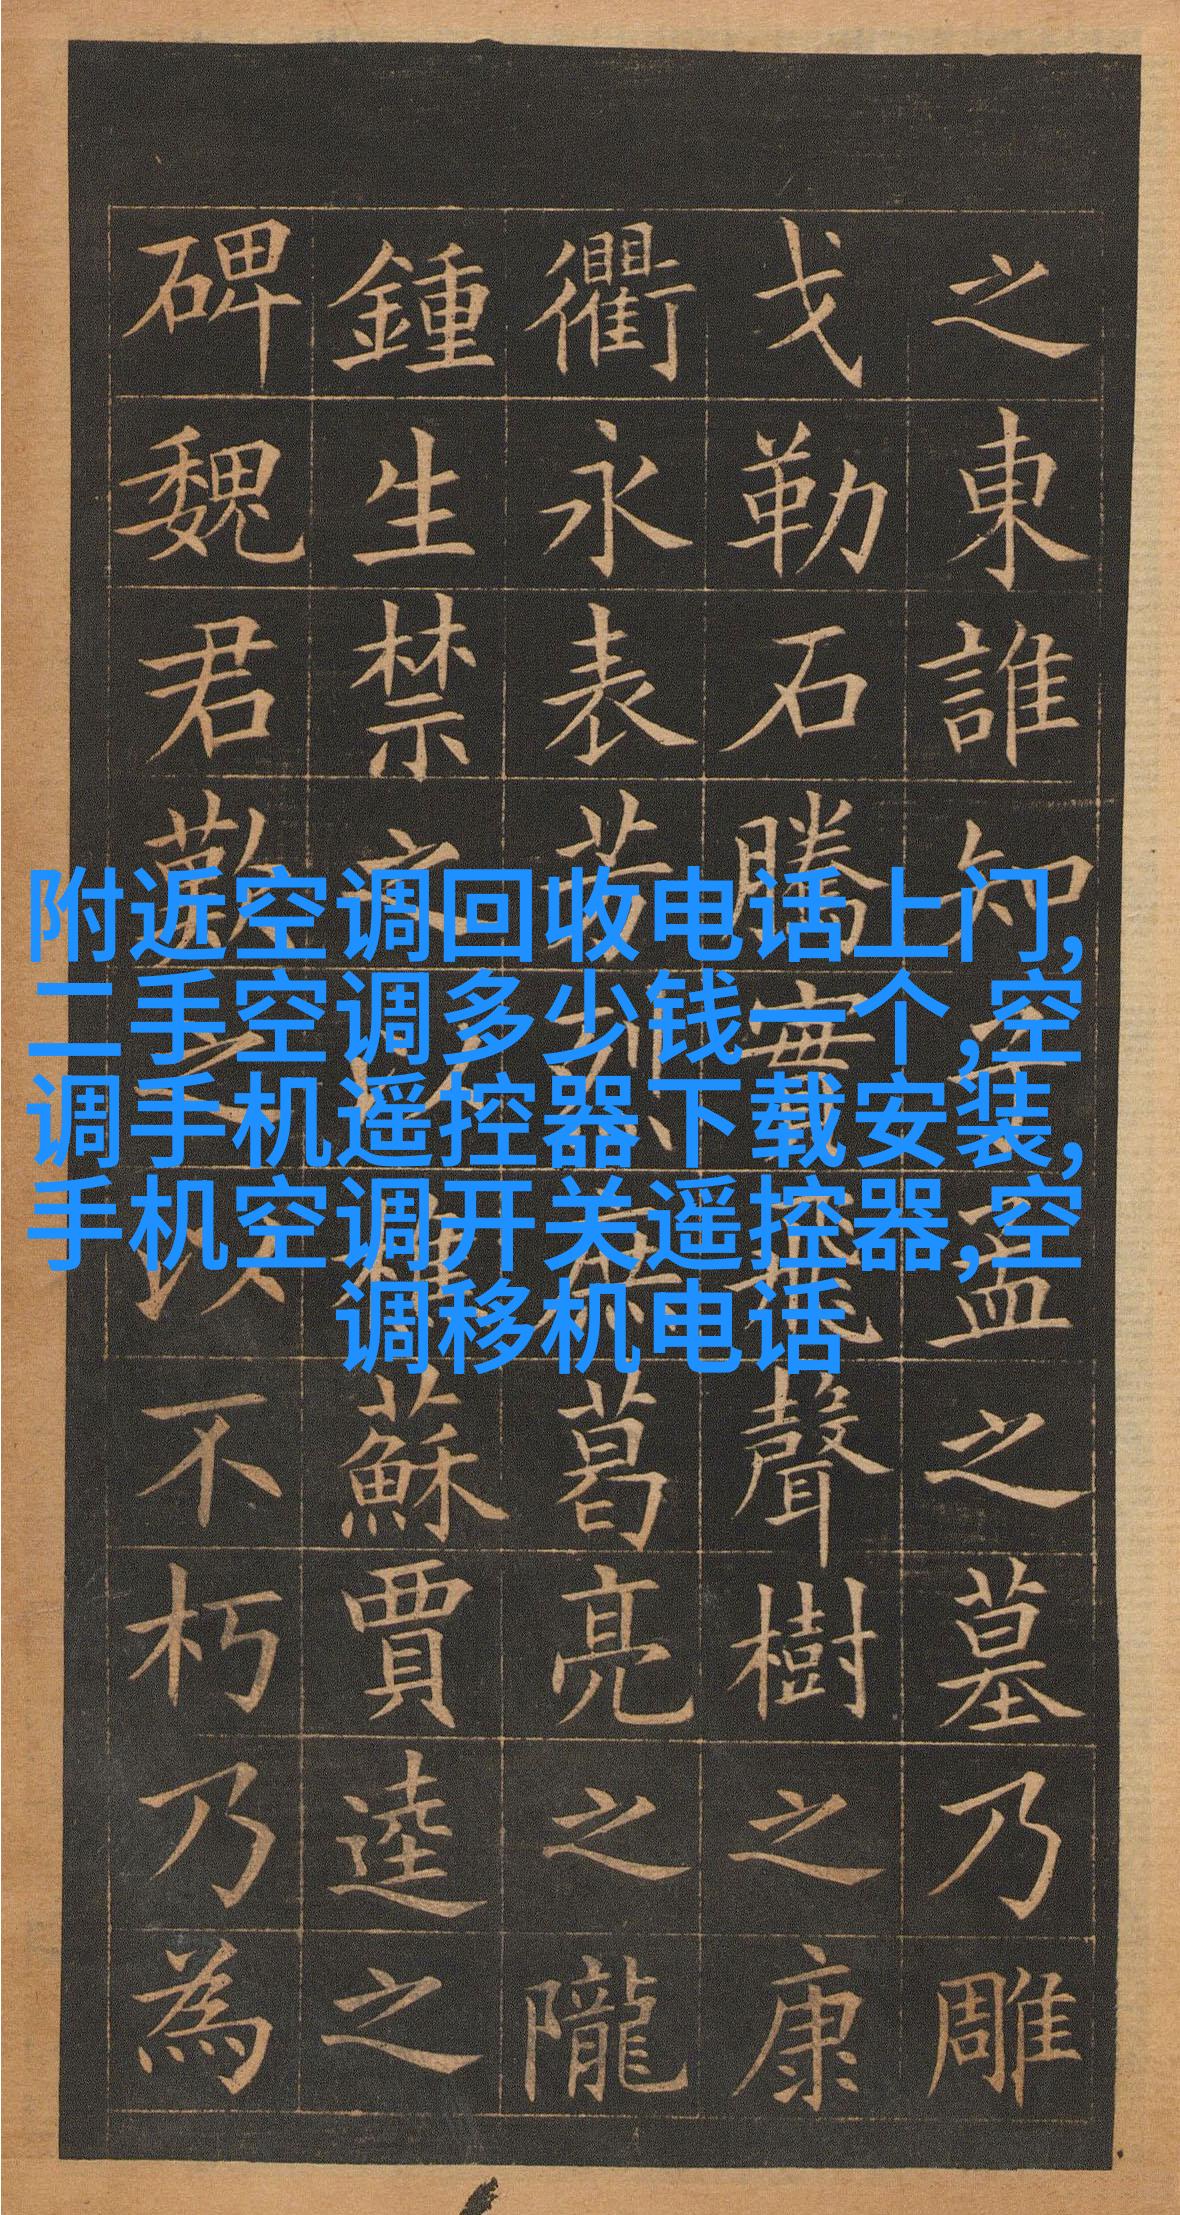 附近空调回收电话上门,
二手空调多少钱一个,空
调手机遥控器下载安装,
手机空调开关遥控器,空
调移机电话
之東誰知子孟之墓乃雕
戈勒石騰實飛聲樹之康
衢永表芳烈庶葛亮之隴
鍾生禁之以樵蘇賈逵之
碑魏君歎之以不朽乃為